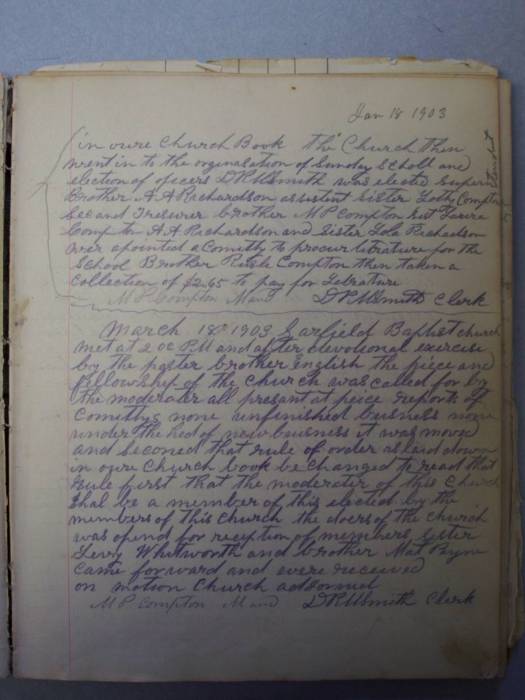 Jan 18 1903
in oure Church Book the Church then
went in to the orginasation of Sunday Scholl and
election of oficers D P Smith was elected Superin
tendent
Brother A A Richardson assistent Sister Lolly Compton
Sec and Tresurer brother M P Compton
Compton A A Richardson and Sister Lola Richardson
wer apointed a Comitty to procur litrature for the
School Brother Compton then taken a
colection of $2.65 to pay for Letrature
M P Compton D P Smith Clerk
March 18 1903 Garfield Baptist church
met at 2 oc P.M and after devotional exercise
by the paster brother English the piece and
fellowship of the church was called for by
the moderater all presant at peice reports of
comittys none unfinished buisness none
under the hed of new buisness it was moved
and seconed that rule of order as laid down
in oure Church book be changed to read that
rule first that the moderater of this Church
shal be a member of this elected by the
members of this church the doors of the church
was opend for reception of members Sister
Whitworth and brother Mat Payne
came forward and were received
on motion Church adjorned
M P Compton D P Smith Clerk